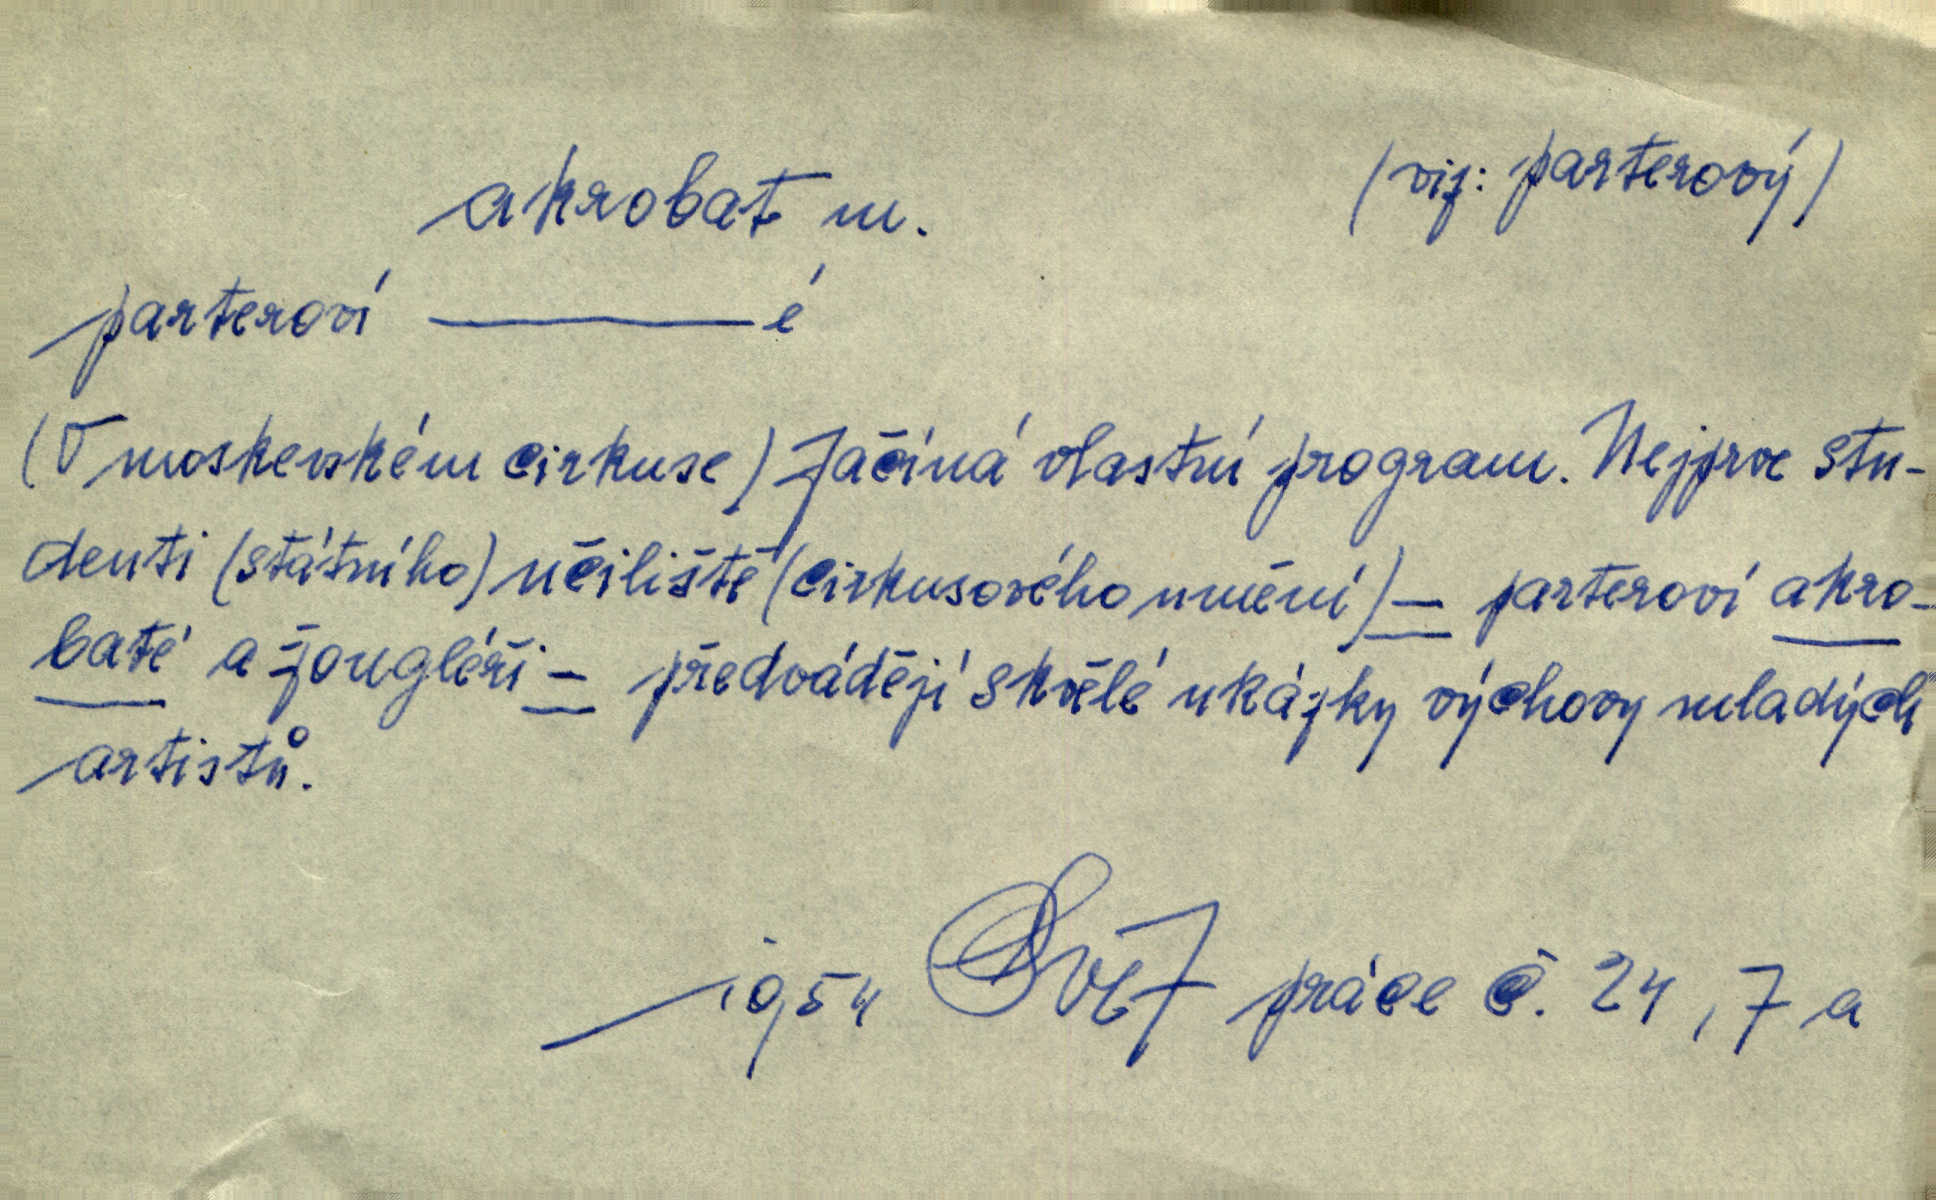 akrobat m. (viz: parterový)
parteroví ———é
(V moskevském cirkuse) začíná vlastní program. Nejprve stu-
denti (státního) učiliště (cirkusového umění) — parteroví akro-
baté a žongléři — předvádějí skvělé ukázky výchovy mladých
artistů.
1954 Svět práce č. 24, 7 a